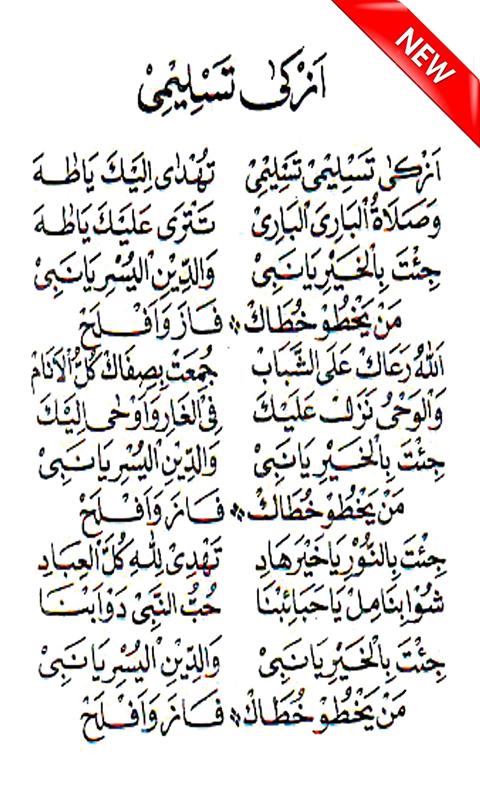 NEW
اَزْكىٰ تَسْلِيْمِيْ
اَزْكىٰ تَسْلِيْمِيْ تَسْلِيْمِيْ تُهْدٰى اِلَيْكَ يَاطٰهَ
وَصَلَاةُ الْبَارِىَ الْبَارِىْ تَتْرَى عَلَيْكَ يَاطٰهَ
جِئْتَ بِالْخَيْرِ يَانَبِىْ وَالدِّيْنِ الْيُسْرِ يَانَبِىْ
مَنْ يَخْطُوْ خُطَاكْ فَازَ وَاَفْلَحْ
اَللهُ رَعَاكْ عَلَى الشَّبَابْ جُمِعَتْ بِصِفَاكْ كُلُّ الْاَنَامْ
وَالْوَحْىُ نَزَلَ عَلَيْكَ فِى الْغَارِ وَاَوْحٰى اِلَيْكَ
جِئْتَ بِالْخَيْرِ يَانَبِىْ وَالدِّيْنِ الْيُسْرِ يَانَبِىْ
مَنْ يَخْطُوْ خُطَاكْ فَازَ وَاَفْلَحْ
جِئْتَ بِالنُّوْرِ يَاخَيْرَ هَادِ تَهْدِىْ لِلّٰهِ كُلَّ الْعِبَادِ
شُوْا بِنَامِلْ يَاحَبَائِبْنَا حُبُّ النَّبِىْ دَوَّابْنَا
جِئْتَ بِالْخَيْرِ يَانَبِىْ وَالدِّيْنِ الْيُسْرِ يَانَبِىْ
مَنْ يَخْطُوْ خُطَاكْ فَازَ وَاَفْلَحْ